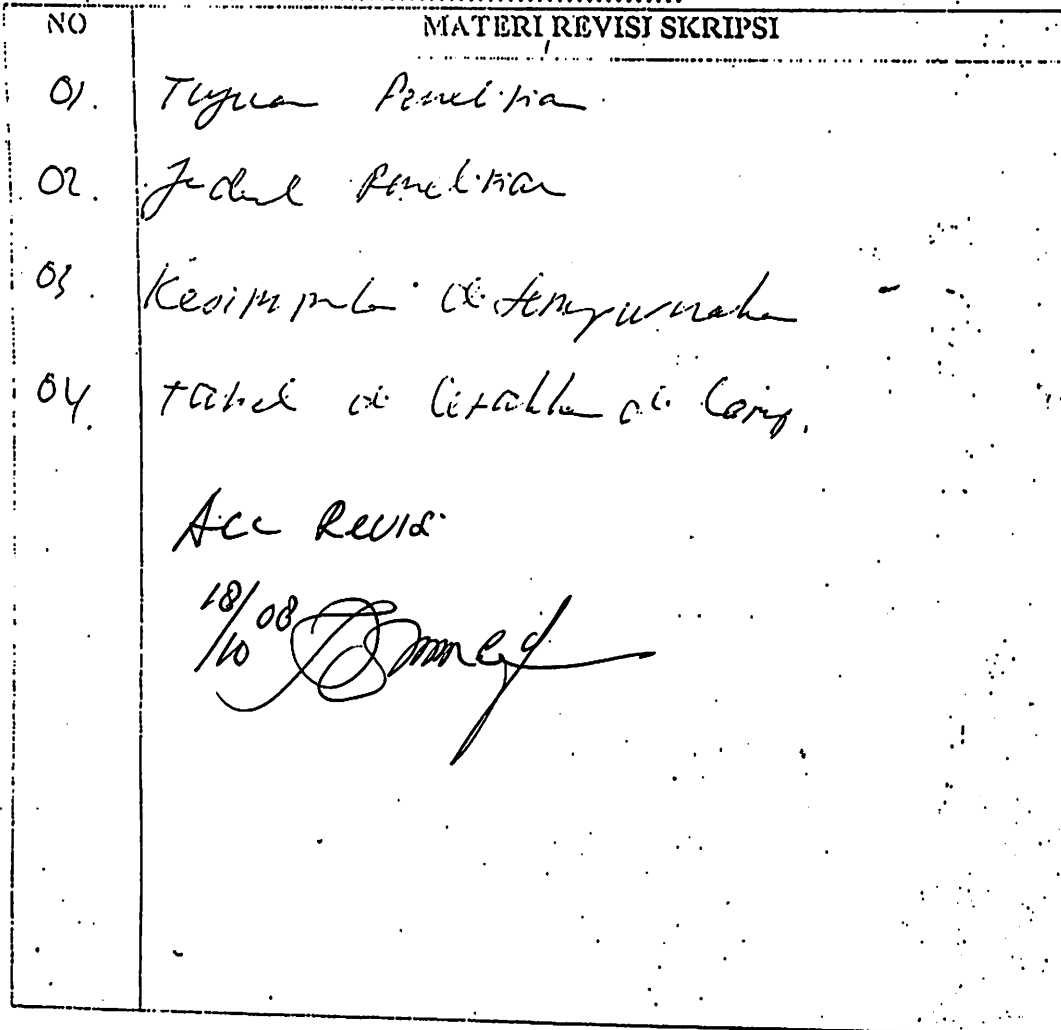 NO MATERI REVISI SKRIPSI
01. Tujuan Penelitian
02. Judul Penelitian
03. Kesimpulan disempurnakan
04. Tabel di letakkan di Lamp.
Acc Revisi
18/10 08